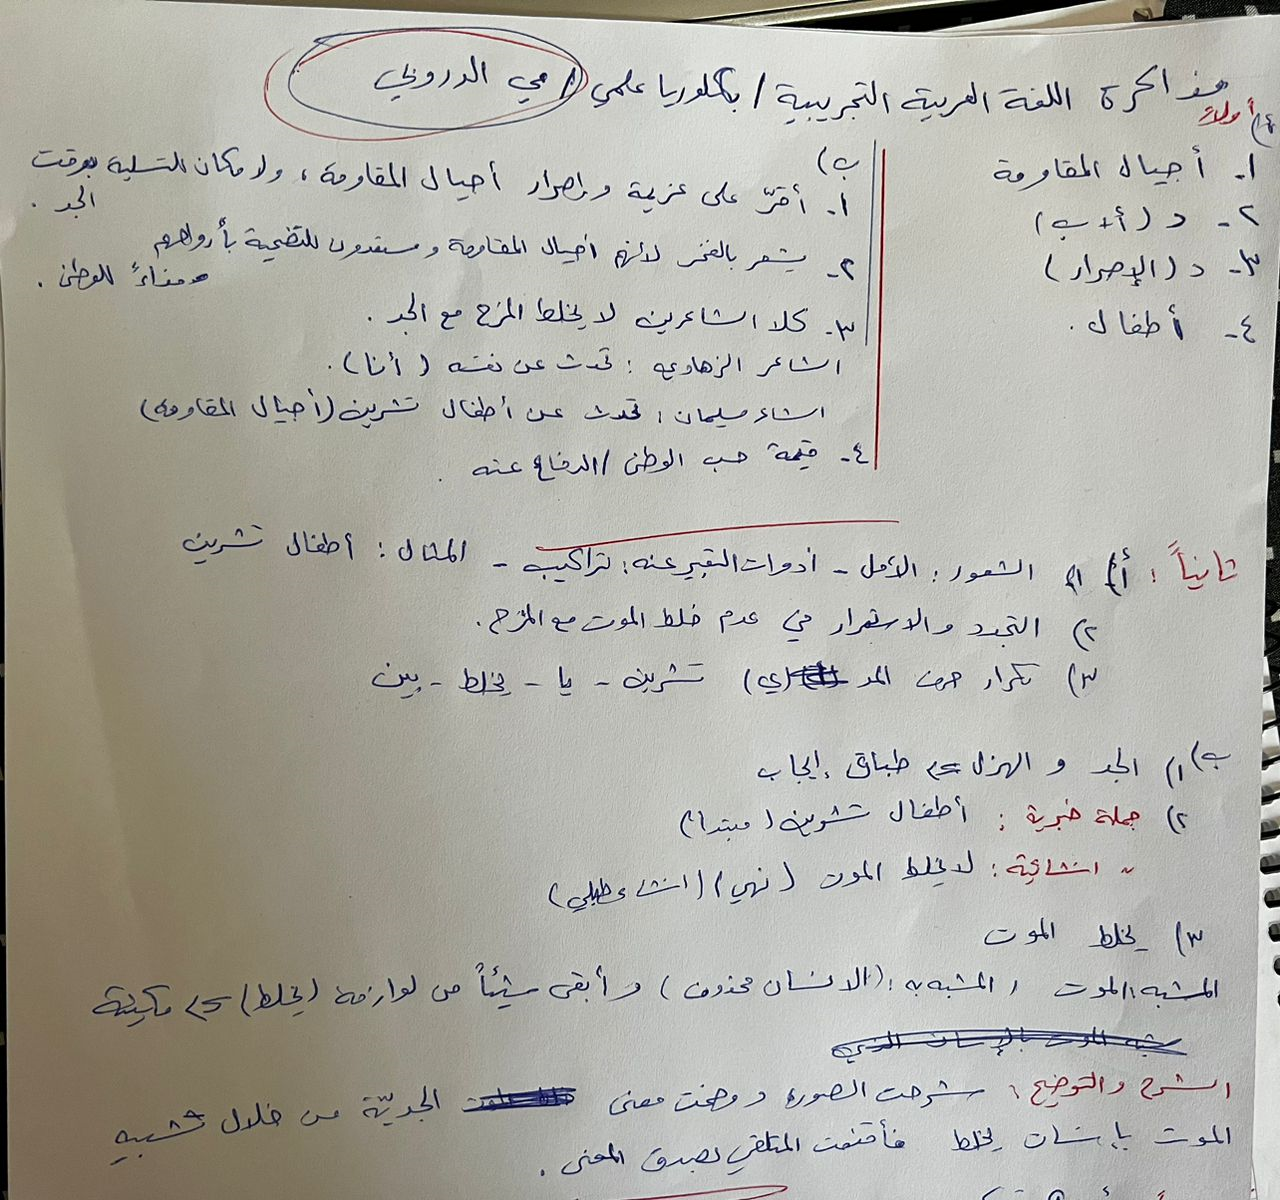 مذاكرة اللغة العربية التجريبية / بكالوريا علمي / مي الدروبي
أولاً: أ)
١- أجيال المقاومة
٢- د (أ+ب)
٣- د (الإصرار)
٤- أطفال.
ب)
١- أقرّ على عزيمة وإصرار أجيال المقاومة، ولا مكان للتسلية بوقت
الجد.
٢- يشعر بالفخر لأنهم أجيال المقاومة ومستعدون للتضحية بأرواحهم
فداءً للوطن.
٣- كلا الشاعرين لا يخلط المزح مع الجد.
الشاعر الزهاوي: تحدث عن نفسه (أنا).
الشاعر سليمان: تحدث عن أطفال تشرين (أجيال المقاومة)
٤- قيمة حب الوطن / الدفاع عنه.
ثانياً: أ) ١) الشعور: الأمل - أدوات التعبير عنه: تراكيب - المثال: أطفال تشرين
٢) التجدد والاستمرار في عدم خلط الموت مع المزح.
٣) تكرار حرف المد (ي) تشرين - يا - يخلط - بين
ب) ١) الجد و الهزل => طباق إيجاب
٢) جملة خبرية: أطفال تشرين (مبتدأ)
" انشائية: لا يخلط الموت (نهي) (انشاء طلبي)
٣) يخلط الموت
المشبه: الموت، المشبه به: (الانسان محذوف) وأبقى شيئاً من لوازمه (يخلط) => مكنية
الشرح والتوضيح: شرحت الصورة ووضحت معنى الجديّة من خلال تشبيه
الموت بإنسان يخلط فأقنعت المتلقي بصدق المعنى.